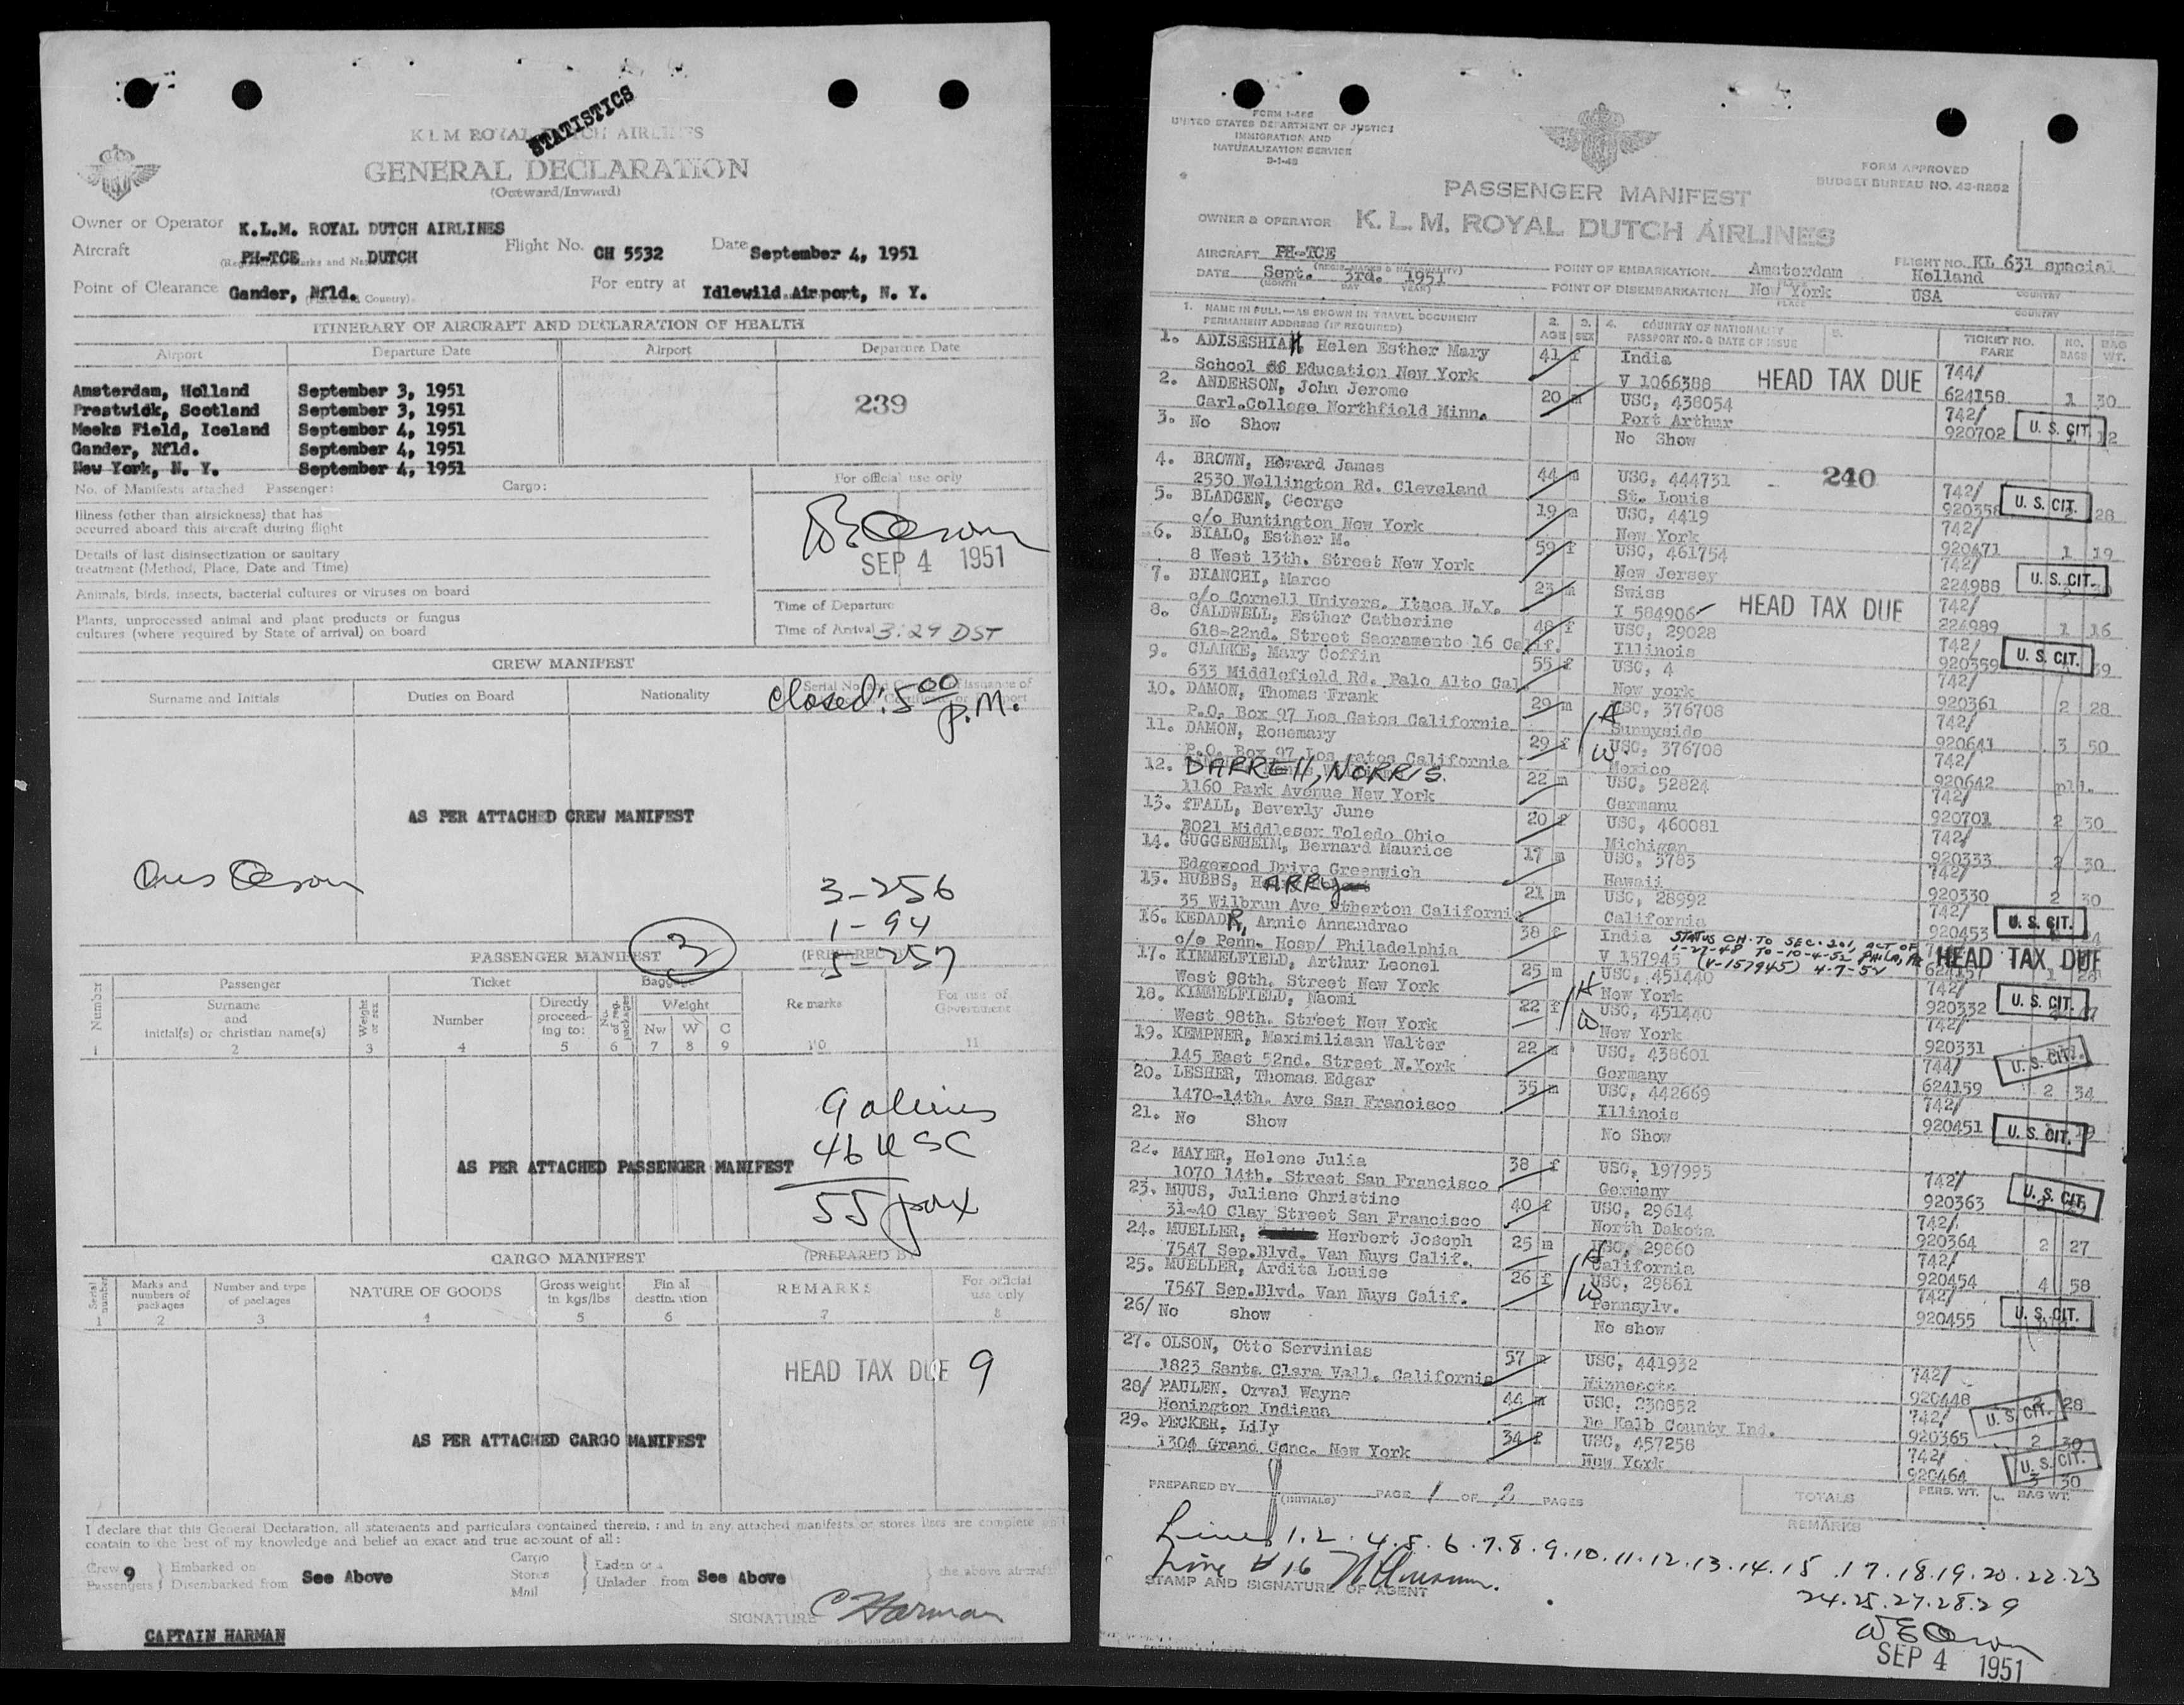 STATISTICS
K L M ROYAL DUTCH AIRLINES
GENERAL DECLARATION
(Outward/Inward)
Owner or Operator K.L.M. ROYAL DUTCH AIRLINES
Aircraft PH-TCE DUTCH Flight No. CH 5532 Date September 4, 1951
Point of Clearance Gander, Nfld. Country) For entry at Idlewild Airport, N. Y.
ITINERARY OF AIRCRAFT AND DECLARATION OF HEALTH
Airport Departure Date Airport Departure Date
Amsterdam, Holland September 3, 1951
239
Prestwick, Scotland September 3, 1951
Meeks Field, Iceland September 4, 1951
Gander, Nfld. September 4, 1951
New York, N. Y. September 4, 1951
No. of Manifests attached Passenger: Cargo:
For official use only
Illness (other than airsickness) that has
occurred aboard this aircraft during flight
SEP 4 1951
Details of last disinsectization or sanitary
treatment (Method, Place, Date and Time)
Animals, birds, insects, bacterial cultures or viruses on board
Plants, unprocessed animal and plant products or fungus
cultures (where required by State of arrival) on board
Time of Departure
Time of Arrival 3:29 DST
CREW MANIFEST
Surname and Initials Duties on Board Nationality
closed: 5 00 p.M.
AS PER ATTACHED CREW MANIFEST
3-256
1-94
5-257
3
PASSENGER MANIFEST (PREPARED
Number Passenger Ticket Baggage Remarks For use of Government
Surname and initial(s) or christian name(s) Weight or sex Number Directly proceeding to: No. of reg. packages Weight
Nw W C
1 2 3 4 5 6 7 8 9 10 11
9 aliens
46 USC
AS PER ATTACHED PASSENGER MANIFEST
55 pax
CARGO MANIFEST (PREPARED B
Serial number Marks and numbers of packages Number and type of packages NATURE OF GOODS Gross weight in kgs/lbs Final destination REMARKS For official use only
1 2 3 4 5 6 7 8
HEAD TAX DUE 9
AS PER ATTACHED CARGO MANIFEST
I declare that this General Declaration, all statements and particulars contained therein, and in any attached manifests or stores lists are complete
contain to the best of my knowledge and belief an exact and true account of all:
Crew 9 Embarked on Cargo Laden on
Passengers Disembarked from See Above Stores Unladen from See Above the above aircraft
Mail
SIGNATURE C Harman
CAPTAIN HARMAN
FORM I-466
UNITED STATES DEPARTMENT OF JUSTICE
IMMIGRATION AND
NATURALIZATION SERVICE
FORM APPROVED
BUDGET BUREAU NO. 43-R252
PASSENGER MANIFEST
OWNER & OPERATOR K. L. M. ROYAL DUTCH AIRLINES
AIRCRAFT PH-TCE POINT OF EMBARKATION Amsterdam Holland FLIGHT NO. KL 631 special
DATE Sept. 3rd. 1951 POINT OF DISEMBARKATION New York USA
(MONTH DAY YEAR) PLACE COUNTRY
1. NAME IN FULL—AS SHOWN IN TRAVEL DOCUMENT 2. 3. 4. COUNTRY OF NATIONALITY 5. TICKET NO. NO. BAG
PERMANENT ADDRESS (IF REQUIRED) AGE SEX PASSPORT NO. & DATE OF ISSUE FARE BAGS WT.
1. ADISESHIAH, Helen Esther Mary 41 f India 744/
School of Education New York V 1066388 HEAD TAX DUE 624158 1 30
2. ANDERSON, John Jerome 20 m USC, 438054 742/
Carl.College Northfield Minn. Port Arthur 920702 U. S. CIT. 12
3. No Show No Show
240
4. BROWN, Howard James 44 m USC, 444731 742/
2530 Wellington Rd. Cleveland St. Louis 920358 U. S. CIT. 28
5. BLADGEN, George 19 m USC, 4419 742/
c/o Huntington New York New York 920471 1 19
6. BIALO, Esther M. 59 f USC, 461754 742/
8 West 13th. Street New York New Jersey 224988 U. S. CIT.
7. BIANCHI, Marco 23 m Swiss 742/
c/o Cornell Univers. Itaca N.Y. I 584906 HEAD TAX DUE 224989 1 16
8. CALDWELL, Esther Catherine 48 f USC, 29028 742/
618-22nd. Street Sacramento 16 Calif. Illinois 920359 U. S. CIT. 39
9. CLARKE, Mary Coffin 55 f USC, 4 742/
633 Middlefield Rd. Palo Alto Cal. New york 920361 2 28
10. DAMON, Thomas Frank 29 m H USC, 376708 742/
P.O. Box 97 Los Gatos California Sunnyside 920641 3 50
11. DAMON, Rosemary 29 f W USC, 376708 742/
P.O. Box 97 Los gatos California Mexico 920642 nil.
12. DARRELL, NORRIS. 22 m USC, 52824 742/
1160 Park Avenue New York Germanu 920701 2 30
13. fFALL, Beverly June 20 f USC, 460081 742/
3021 Middlesex Toledo Ohio Michigan 920333 2 30
14. GUGGENHEIM, Bernard Maurice 17 m USC, 3783 742/
Edgewood Drive Greenwich Hawaii 920330 2 30
15. HUBBS, HARRY 21 m USC, 28992 742/
35 Wilbrun Ave Atherton California California 920453 U. S. CIT.
16. KEDADR, Annie Annandrao 38 f India STATUS CH. TO SEC. 201, ACT OF
c/o Penn. Hosp/ Philadelphia V 157945 1-27-48 TO-10-4-52 PHILA, PA HEAD TAX DUE
(V-157945) 4-7-52 624157 1 28
17. KIMMELFIELD, Arthur Leonel 25 m H USC, 451440 742/
West 98th. Street New York New York 920332 U. S. CIT. 47
18. KIMMELFIELD, Naomi 22 f W USC, 451440 742/
West 98th. Street New York New York 920331
19. KEMPNER, Maximiliaan Walter 22 m USC, 438601 744/ U. S. CIT.
145 East 52nd. Street N.York Germany 624159 2 34
20. LESHER, Thomas Edgar 35 m USC, 442669 742/
1470-14th. Ave San Francisco Illinois 920451 U. S. CIT. 19
21. No Show No Show
22. MAYER, Helene Julia 38 f USC, 197995 742/
1070 14th. Street San Francisco Germany 920363 U. S. CIT
23. MUUS, Juliane Christine 40 f USC, 29614 742/
31-40 Clay Street San Francisco North Dakota 920364 2 27
24. MUELLER, Herbert Joseph 25 m H USC, 29860 742/
7547 Sep.Blvd. Van Nuys Calif. California 920454 4 58
25. MUELLER, Ardita Louise 26 f W USC, 29861 742/
7547 Sep.Blvd. Van Nuys Calif. Pennsylv. 920455 U. S. CIT.
26/ No show No show
27. OLSON, Otto Servinias 57 m USC, 441932 742/
1823 Santa Clara Vall. California Minnesota 920448 28
28/ PAULEN, Orval Wayne 44 m USC, 230852 742/ U. S. CIT.
Honington Indiana De Kalb County Ind. 920365 2 30
29. PECKER, Lily 34 f USC, 457258 742/ U. S. CIT.
1304 Grand Conc. New York New York 920464 3 30
PREPARED BY (INITIALS) PAGE 1 OF 2 PAGES TOTALS PERS. WT. BAG WT.
REMARKS
Lines 1.2.4.5.6.7.8.9.10.11.12.13.14.15.17.18.19.20.22.23
Line # 16
STAMP AND SIGNATURE OF AGENT
24.25.27.28.29
SEP 4 1951